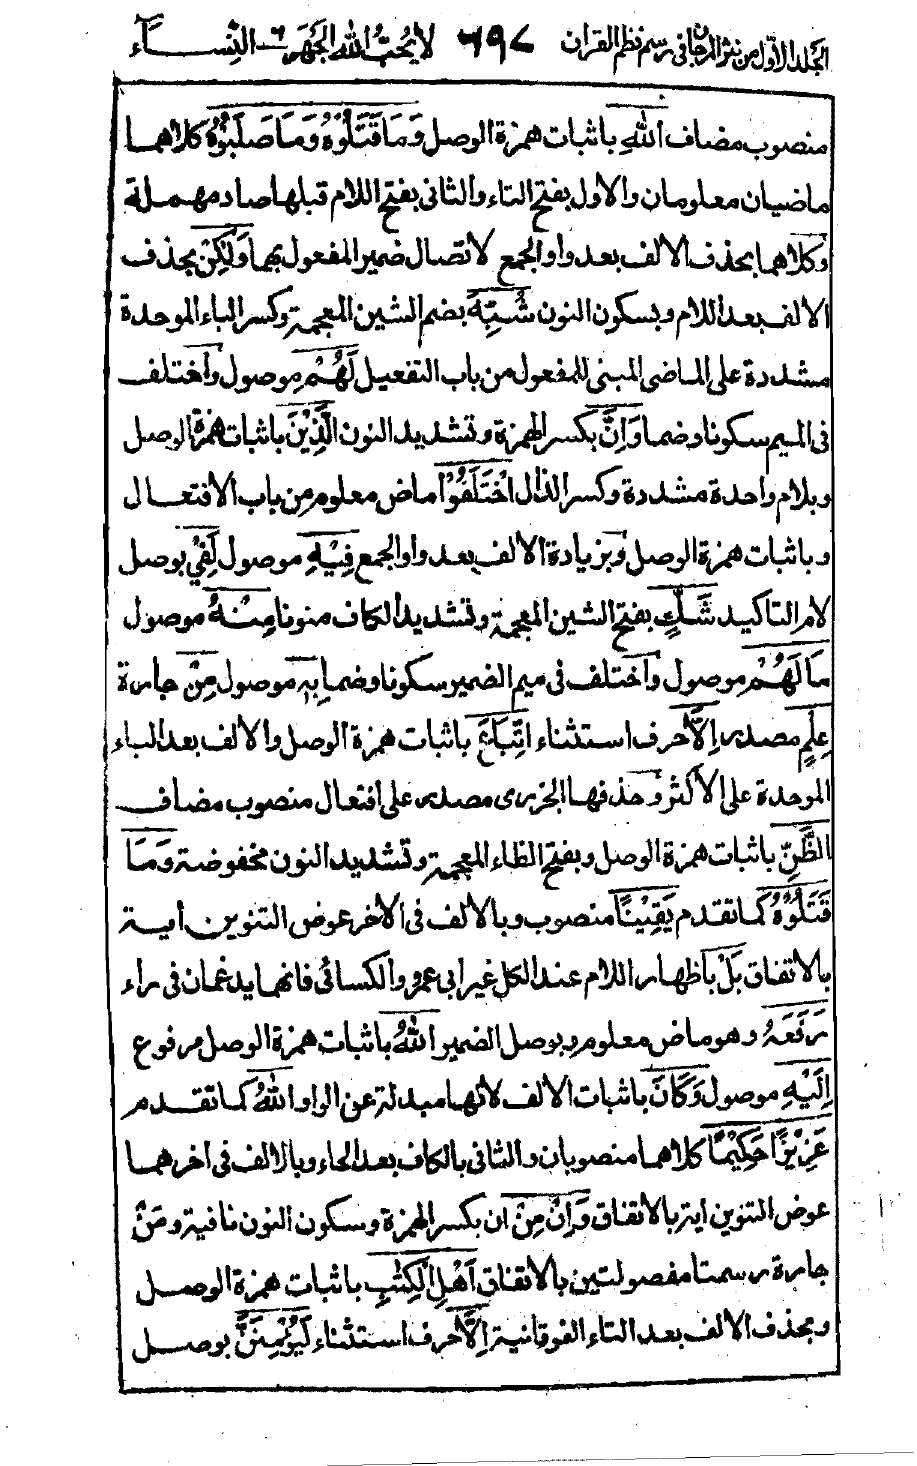 الجلد الاول من نثر المرجان في رسم نظم القران ٦٩٧ لا يحب الله الجهر ٦ـ النسـاء
منصوب مضاف اللهِ باثبات همزة الوصل وَمَا قَتَلُوْهُ وَمَا صَلَبُوْهُ كلاهما
ماضيان معلومان والاول بفتح التاء والثانى بفتح اللام قبلها صاد مهملة
وكلاهما بحذف الالف بعد واو الجمع لاتصال ضمير المفعول بهما وَلٰكِنْ بحذف
الالف بعد اللام وبسكون النون شُبِّهَ بضم الشين المعجمة وكسر الباء الموحدة
مشددة على الماضى المبنى للمفعول من باب التفعيل لَهُمْ موصول واختلف
فى الميم سكونا وضما وَاِنَّ بكسر الهمزة وتشديد النون الَّذِيْنَ باثبات همزة الوصل
وبلام واحدة مشددة وكسر الذال اخْتَلَفُوْا ماض معلوم من باب الافتعال
وباثبات همزة الوصل وبزيادة الالف بعد واو الجمع فِيْهِ موصول لَفِيْ بوصل
لام التاكيد شَكٍّ بفتح الشين المعجمة وتشديد الكاف منونا مِنْهُ موصول
مَا لَهُمْ موصول واختلف فى ميم الضمير سكونا وضما بِهٖ موصول مِنْ جارة
عِلْمٍ مصدر اِلَّا حرف استثناء اتِّبَاعَ باثبات همزة الوصل والالف بعد الباء
الموحدة على الاكثر وحذفها الجزرى مصدر على افتعال منصوب مضاف
الظَّنِّ باثبات همزة الوصل وبفتح الظاء المعجمة وتشديد النون مخفوضة وَمَا
قَتَلُوْهُ كما تقدم يَقِيْنًا منصوب وبالالف فى الاخر عوض التنوين اية
بالاتفاق بَلْ باظهار اللام عند الكل غير ابى عمرو والكسائى فانهما يدغمان فى راء
رَفَعَهُ وهو ماض معلوم وبوصل الضمير اللهُ باثبات همزة الوصل مرفوع
اِلَيْهِ موصول وَكَانَ باثبات الالف لانها مبدلة عن الواو اللهُ كما تقدم
عَزِيْزًا حَكِيْمًا كلاهما منصوبان والثانى بالكاف بعد الحاء وبالالف فى اخرهما
عوض التنوين اية بالاتفاق وَاِنْ مِنْ ان بكسر الهمزة وسكون النون نافية ومن
جارة رسمتا مفصولتين بالاتفاق اَهْلِ الْكِتٰبِ باثبات همزة الوصل
وبحذف الالف بعد التاء الفوقانية اِلَّا حرف استثناء لَيُؤْمِنَنَّ بوصل